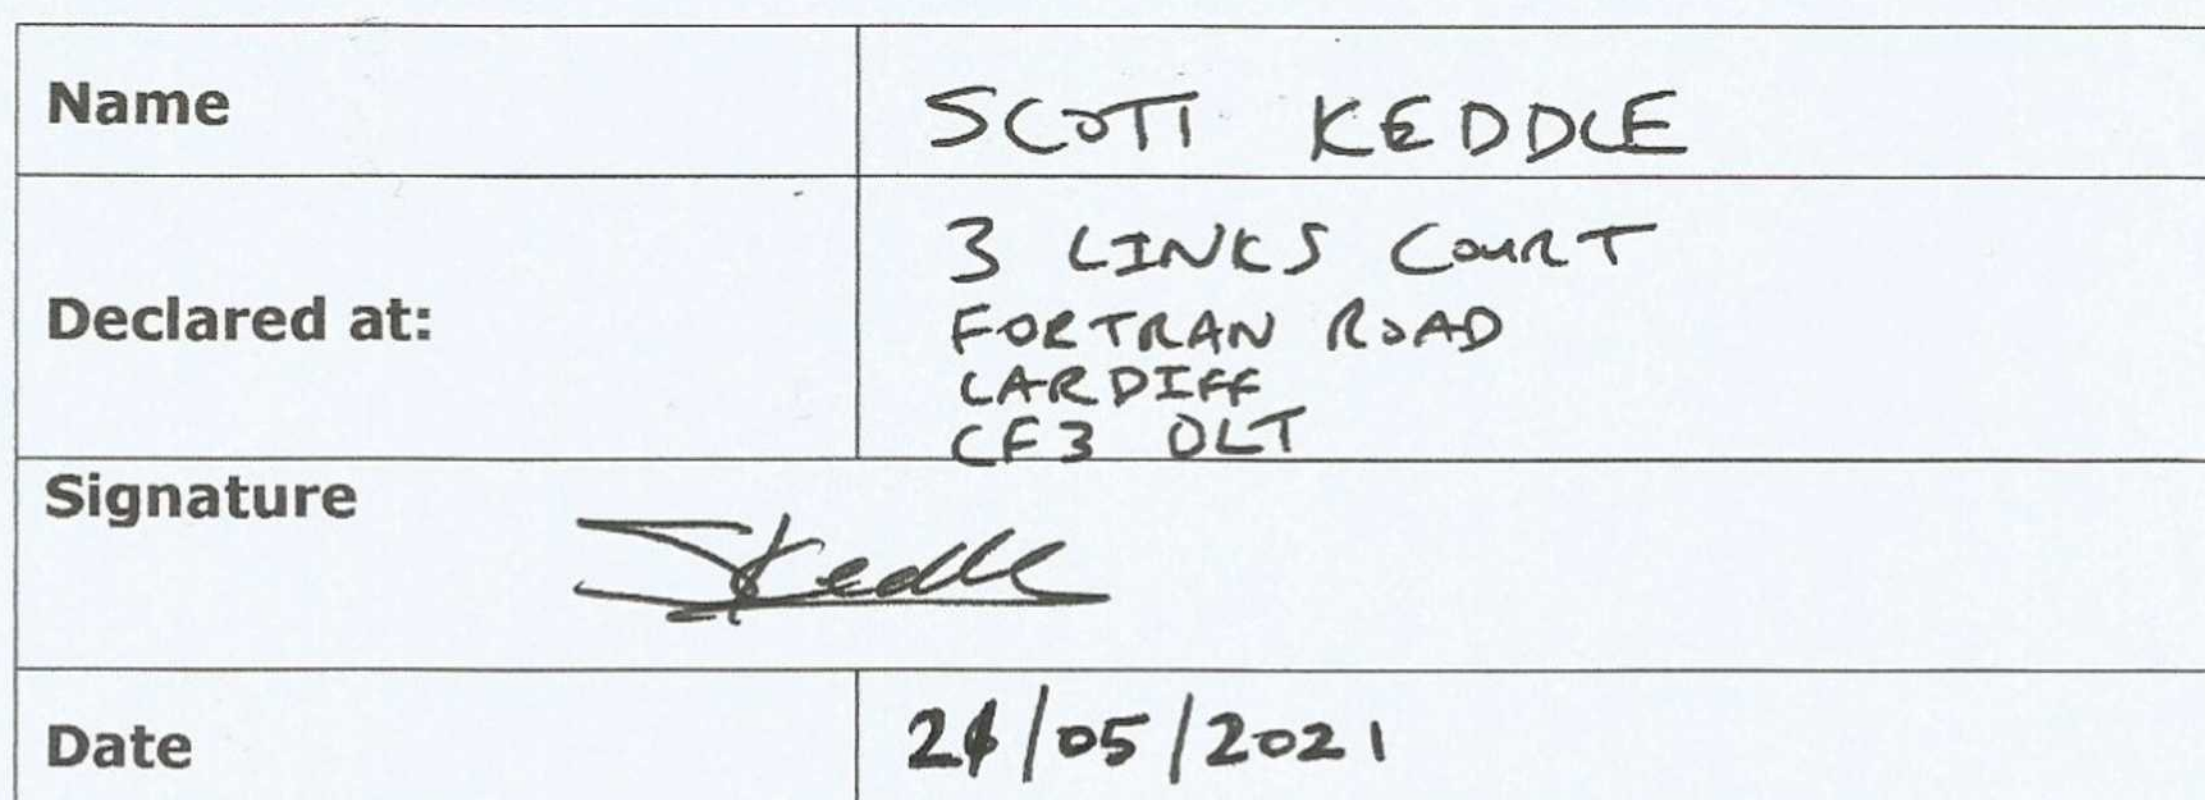 Name
SCOTT KEDDLE
Declared at:
3 LINKS COURT
FORTRAN ROAD
CARDIFF
CF3 0LT
Signature
SKeddle
Date
/05/2021